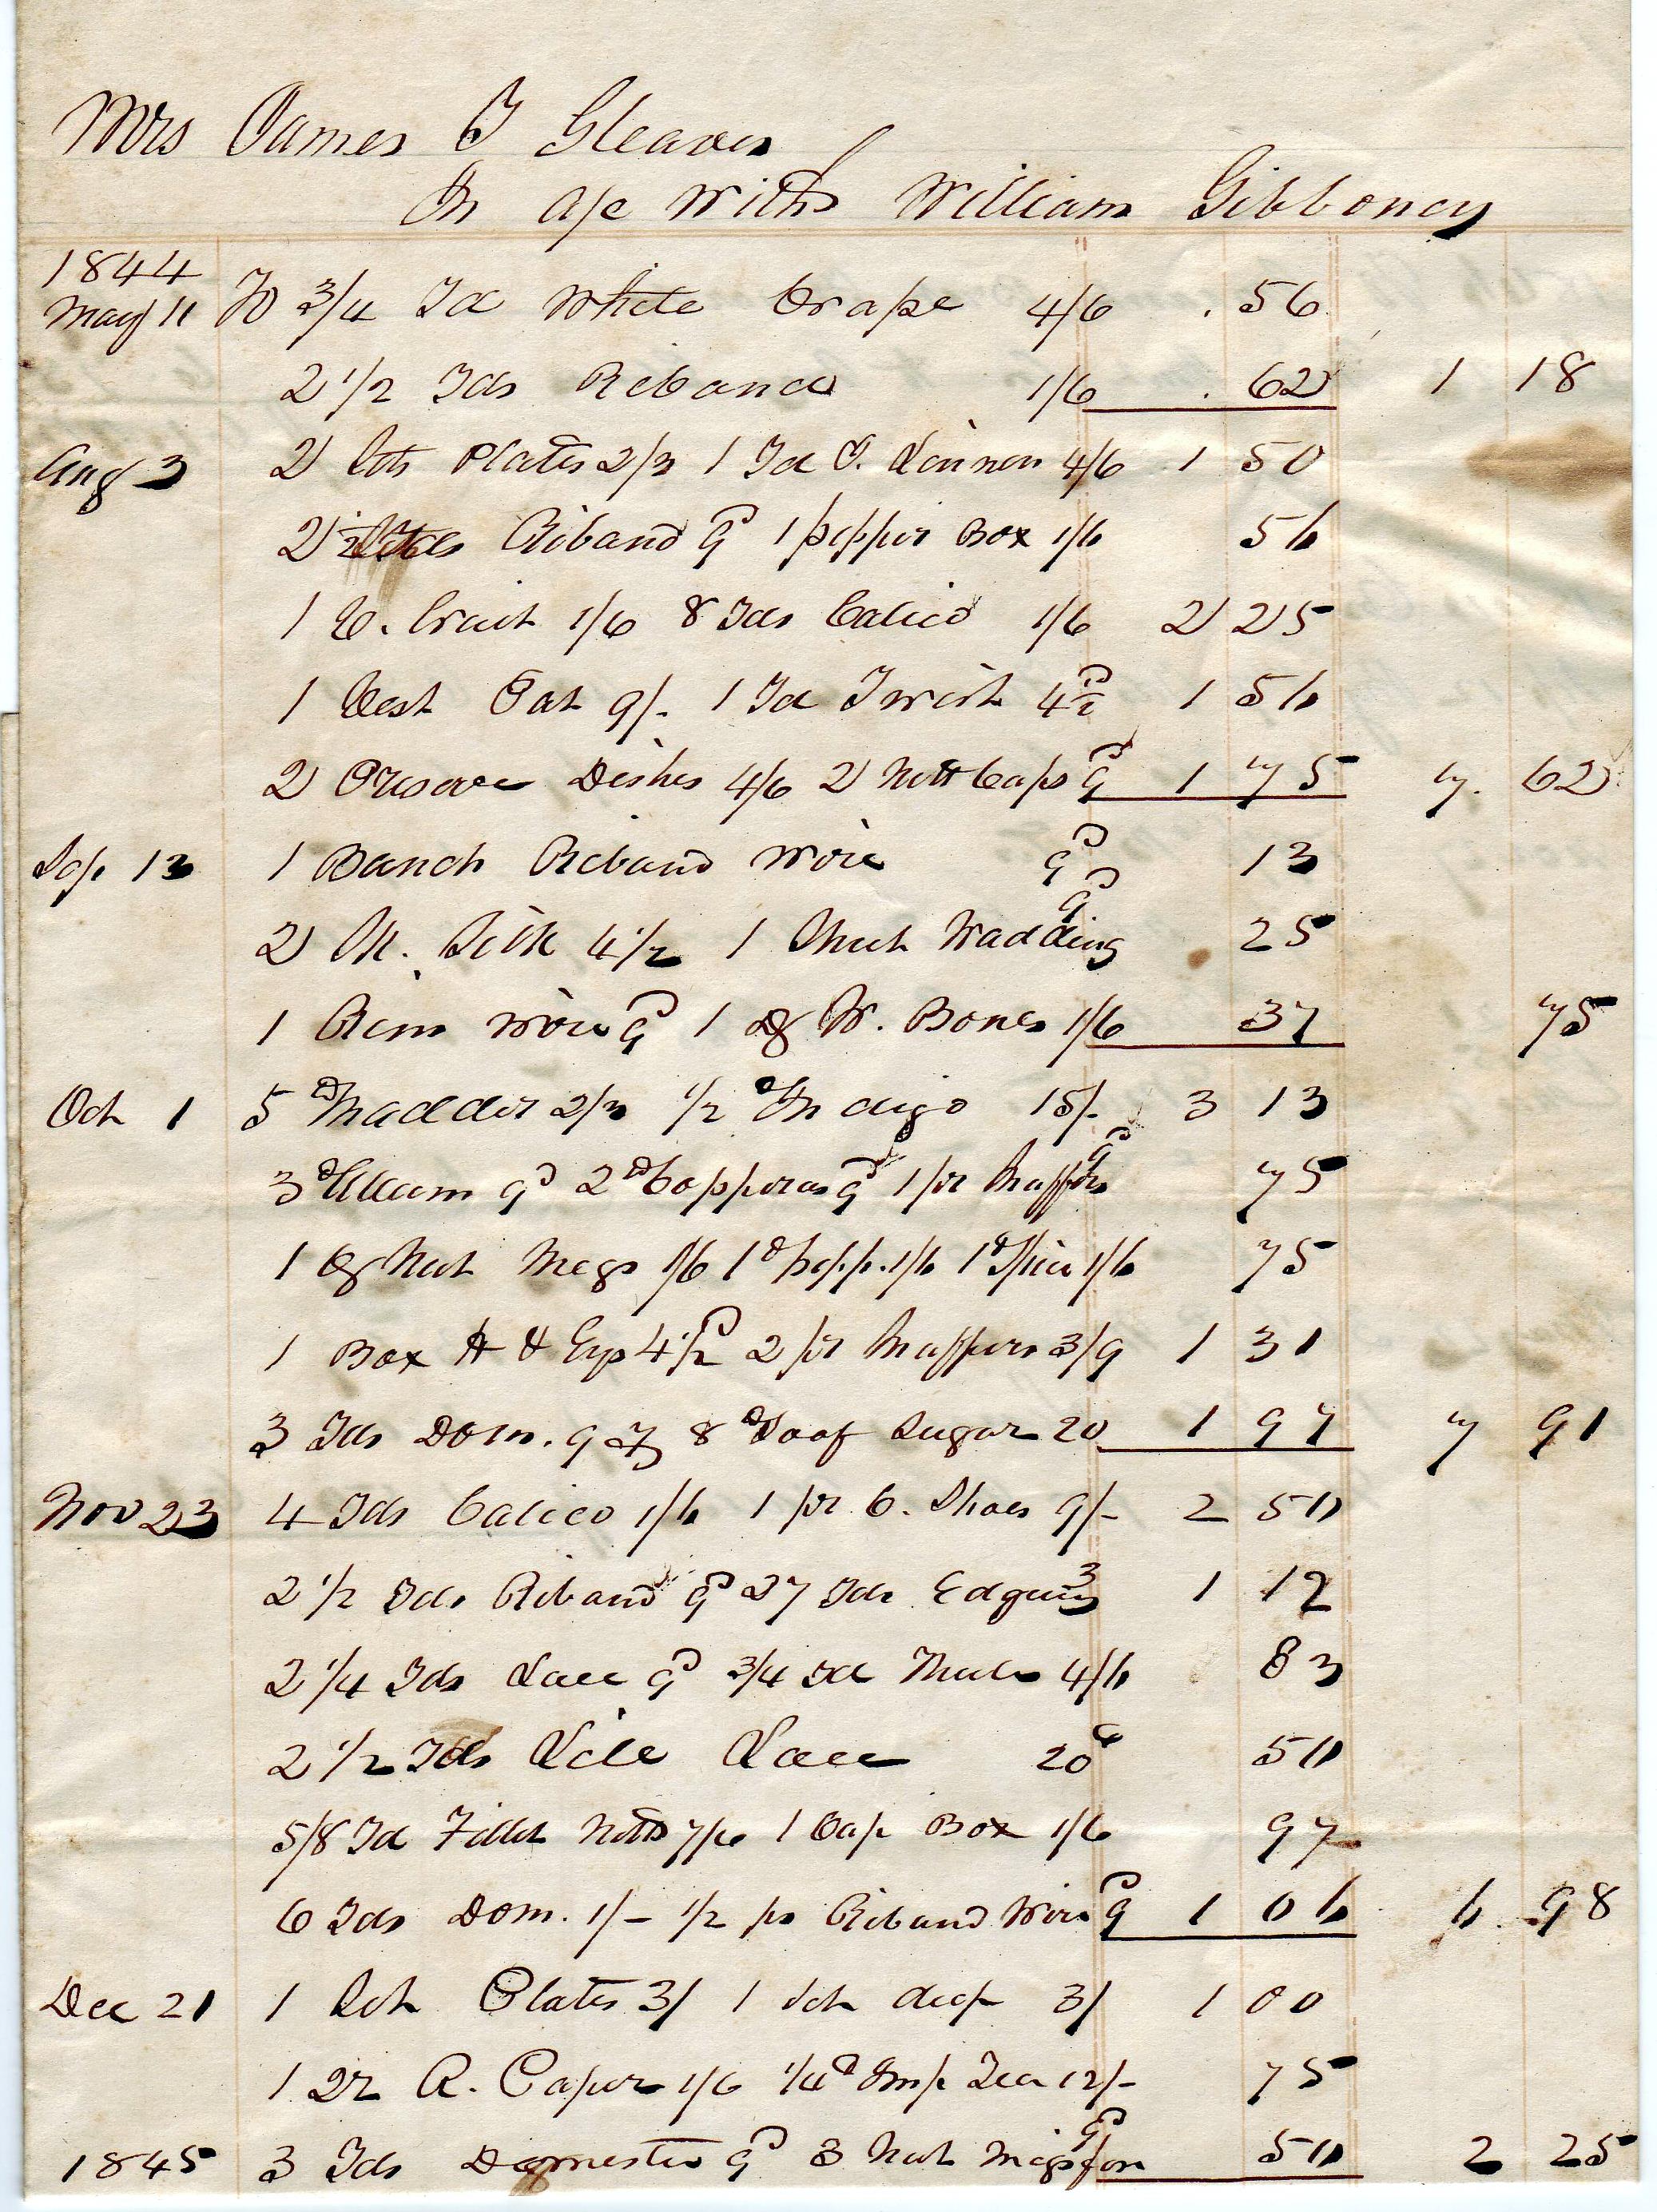 Mrs James T Gleaves
In a/c with William Gibboney
1844
May 11 To 3/4 Yd White Crape 4/6 .56
2 1/2 Yds Riband 1/6 .62 1 18
Aug 3 2 Sets Plates 2/3 1 Yd I. Linnen 4/6 1 50
2 1/2 Yds Riband 9d 1 pepper Box 1/6 56
1 C. 1/6 8 Yds Calico 1/6 2 25
1 Vest Pat 9/- 1 Yd Twist 4 1/2d 1 56
2 Preserve Dishes 4/6 2 Nett Caps 9d 1 75 7. 62
Sep 13 1 Bunch Riband Wire 9d 13
2 Sk. Silk 4 1/2 1 Sheet Wadding 9d 25
1 Rim Wire 9d 1 W. Bones 1/6 37 75
Oct 1 5 lb Madder 2/3 1/2 lb Indigo 15/- 3 13
3 lb Allum 9d 2 lb Copperas 9d 1 pr Snuffers 9d 75
1 Nut Megs 1/6 1 lb pepp. 1/6 1 lb Spice 1/6 75
1 Box H & Eys 4 1/2d 2 pr Snuffers 3/9 1 31
3 Yds Dom. 9d 8 lb Loaf Sugar 20 1 97 7 91
Nov 23 4 Yds Calico 1/6 1 pr C. Shoes 9/- 2 50
2 1/2 Yds Riband 9d 27 Yds Edging 3 1 12
2 1/4 Yds Lace 9d 3/4 Yd 4/6 83
2 1/2 Yds Lile Lace 20c 50
5/8 Yd Fillet Nett 7/6 1 Cap Box 1/6 97
6 Yds Dom. 1/- 1/2 ps Riband Wire 9d 1 06 6. 98
Dec 21 1 Set Plates 3/ 1 Set deep 3/ 1 00
1 Qr R. Paper 1/6 1/4 lb Imp Tea 12/- 75
1845 3 Yds Domestic 9d 3 Nut Megs for 9d 50 2 25